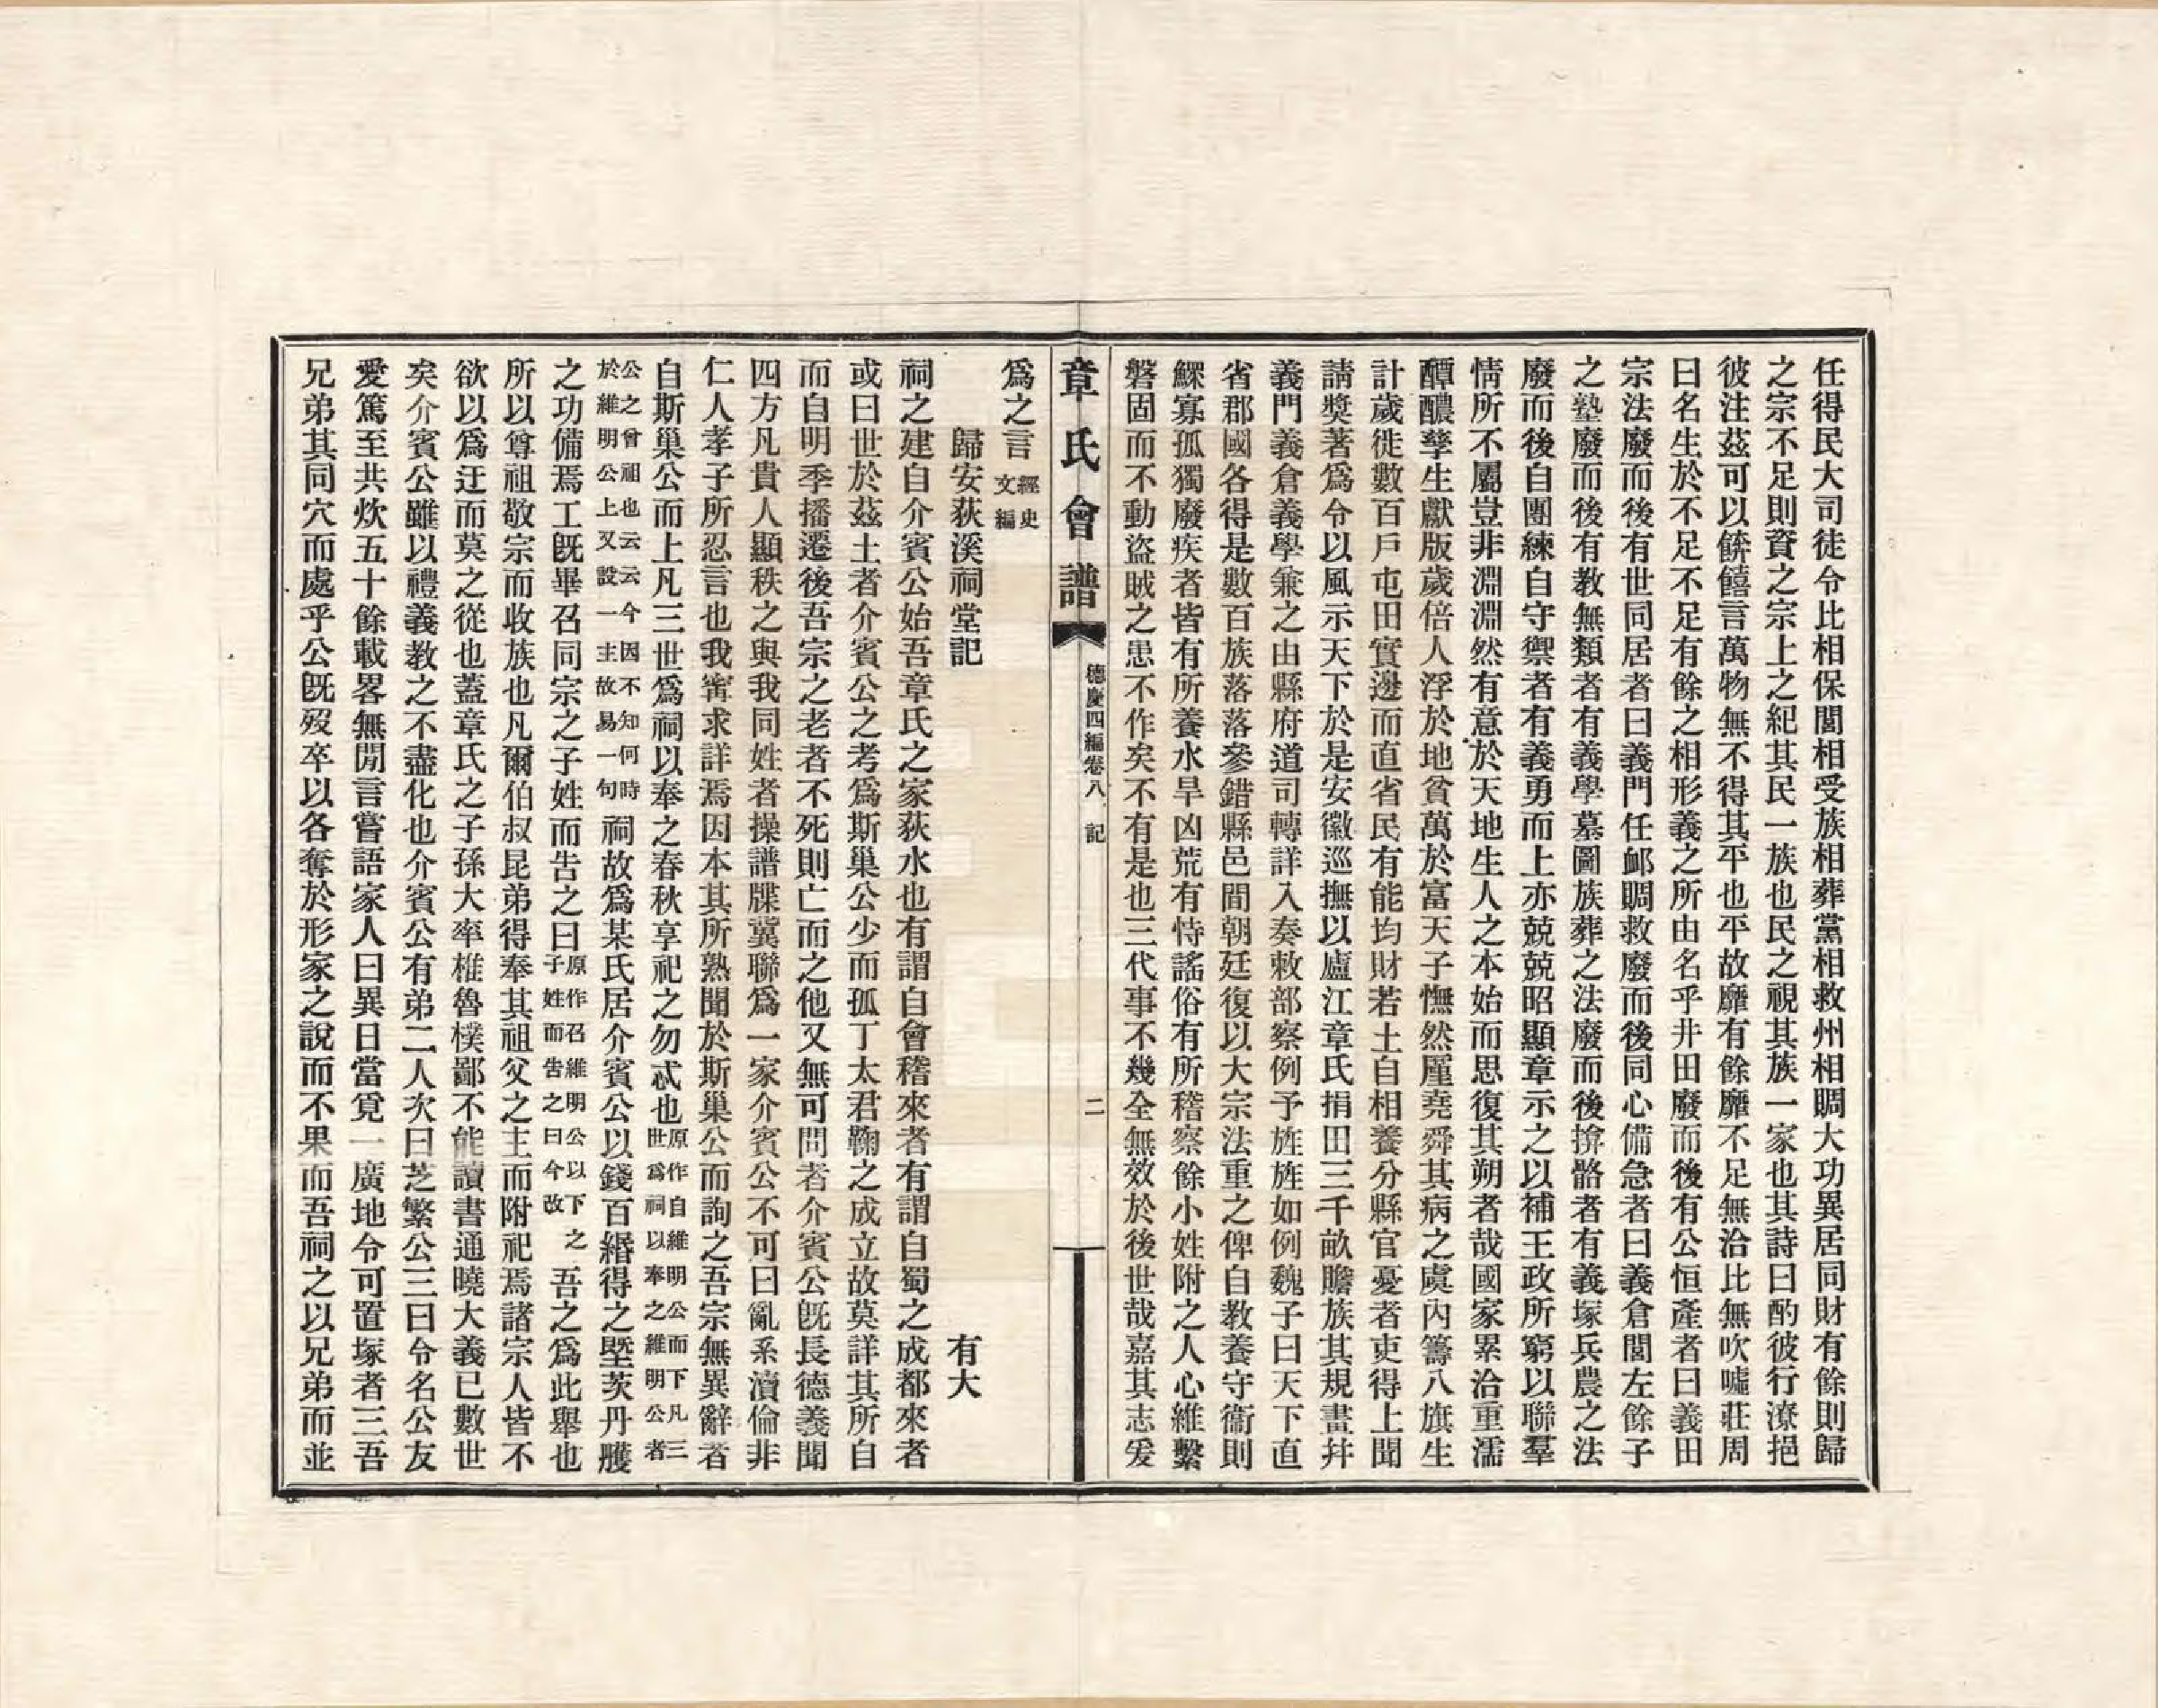 任得民大司徒令比相保閭相受族相葬黨相救州相賙大功異居同財有餘則歸
之宗不足則資之宗上之紀其民一族也民之視其族一家也其詩曰酌彼行潦挹
彼注茲可以餴饎言萬物無不得其平也平故靡有餘靡不足無洽比無吹噓莊周
曰名生於不足不足有餘之相形義之所由名乎井田廢而後有公恒產者曰義田
宗法廢而後有世同居者曰義門任卹賙救廢而後同心備急者曰義倉閭左餘子
之塾廢而後有教無類者有義學墓圖族葬之法廢而後揜骼者有義塚兵農之法
廢而後自團練自守禦者有義勇而上亦兢兢昭顯章示之以補王政所窮以聯羣
情所不屬豈非淵淵然有意於天地生人之本始而思復其朔者哉國家累洽重濡
醰醲孳生獻版歲倍人浮於地貧萬於富天子憮然厪堯舜其病之虞內籌八旗生
計歲徙數百戶屯田實邊而直省民有能均財若土自相養分縣官憂者吏得上聞
請獎著爲令以風示天下於是安徽巡撫以廬江章氏捐田三千畝贍族其規畫幷
義門義倉義學兼之由縣府道司轉詳入奏敕部察例予旌旌如例魏子曰天下直
省郡國各得是數百族落落參錯縣邑間朝廷復以大宗法重之俾自教養守衞則
鰥寡孤獨廢疾者皆有所養水旱凶荒有恃謠俗有所稽察餘小姓附之人心維繫
磐固而不動盜賊之患不作矣不有是也三代事不幾全無效於後世哉嘉其志爰
章氏會譜
德慶四編卷八
記
二
爲之言
經史
文編
歸安荻溪祠堂記
有大
祠之建自介賓公始吾章氏之家荻水也有謂自會稽來者有謂自蜀之成都來者
或曰世於茲土者介賓公之考爲斯巢公少而孤丁太君鞠之成立故莫詳其所自
而自明季播遷後吾宗之老者不死則亡而之他又無可問者介賓公既長德義聞
四方凡貴人顯秩之與我同姓者操譜牒冀聯爲一家介賓公不可曰亂系瀆倫非
仁人孝子所忍言也我甯求詳焉因本其所熟聞於斯巢公而詢之吾宗無異辭者
自斯巢公而上凡三世爲祠以奉之春秋享祀之勿忒也
原作自維明公而下凡三
世爲祠以奉之維明公者
公之曾祖也云云今因不知何時
於維明公上又設一主故易一句
祠故爲某氏居介賓公以錢百緡得之塈茨丹雘
之功備焉工既畢召同宗之子姓而告之曰
原作召維明公以下之
子姓而告之曰今改
吾之爲此舉也
所以尊祖敬宗而收族也凡爾伯叔昆弟得奉其祖父之主而附祀焉諸宗人皆不
欲以爲迂而莫之從也蓋章氏之子孫大率椎魯樸鄙不能讀書通曉大義已數世
矣介賓公雖以禮義教之不盡化也介賓公有弟二人次曰芝繁公三曰令名公友
愛篤至共炊五十餘載畧無閒言嘗語家人曰異日當覓一廣地令可置塚者三吾
兄弟其同穴而處乎公既歿卒以各奪於形家之說而不果而吾祠之以兄弟而並